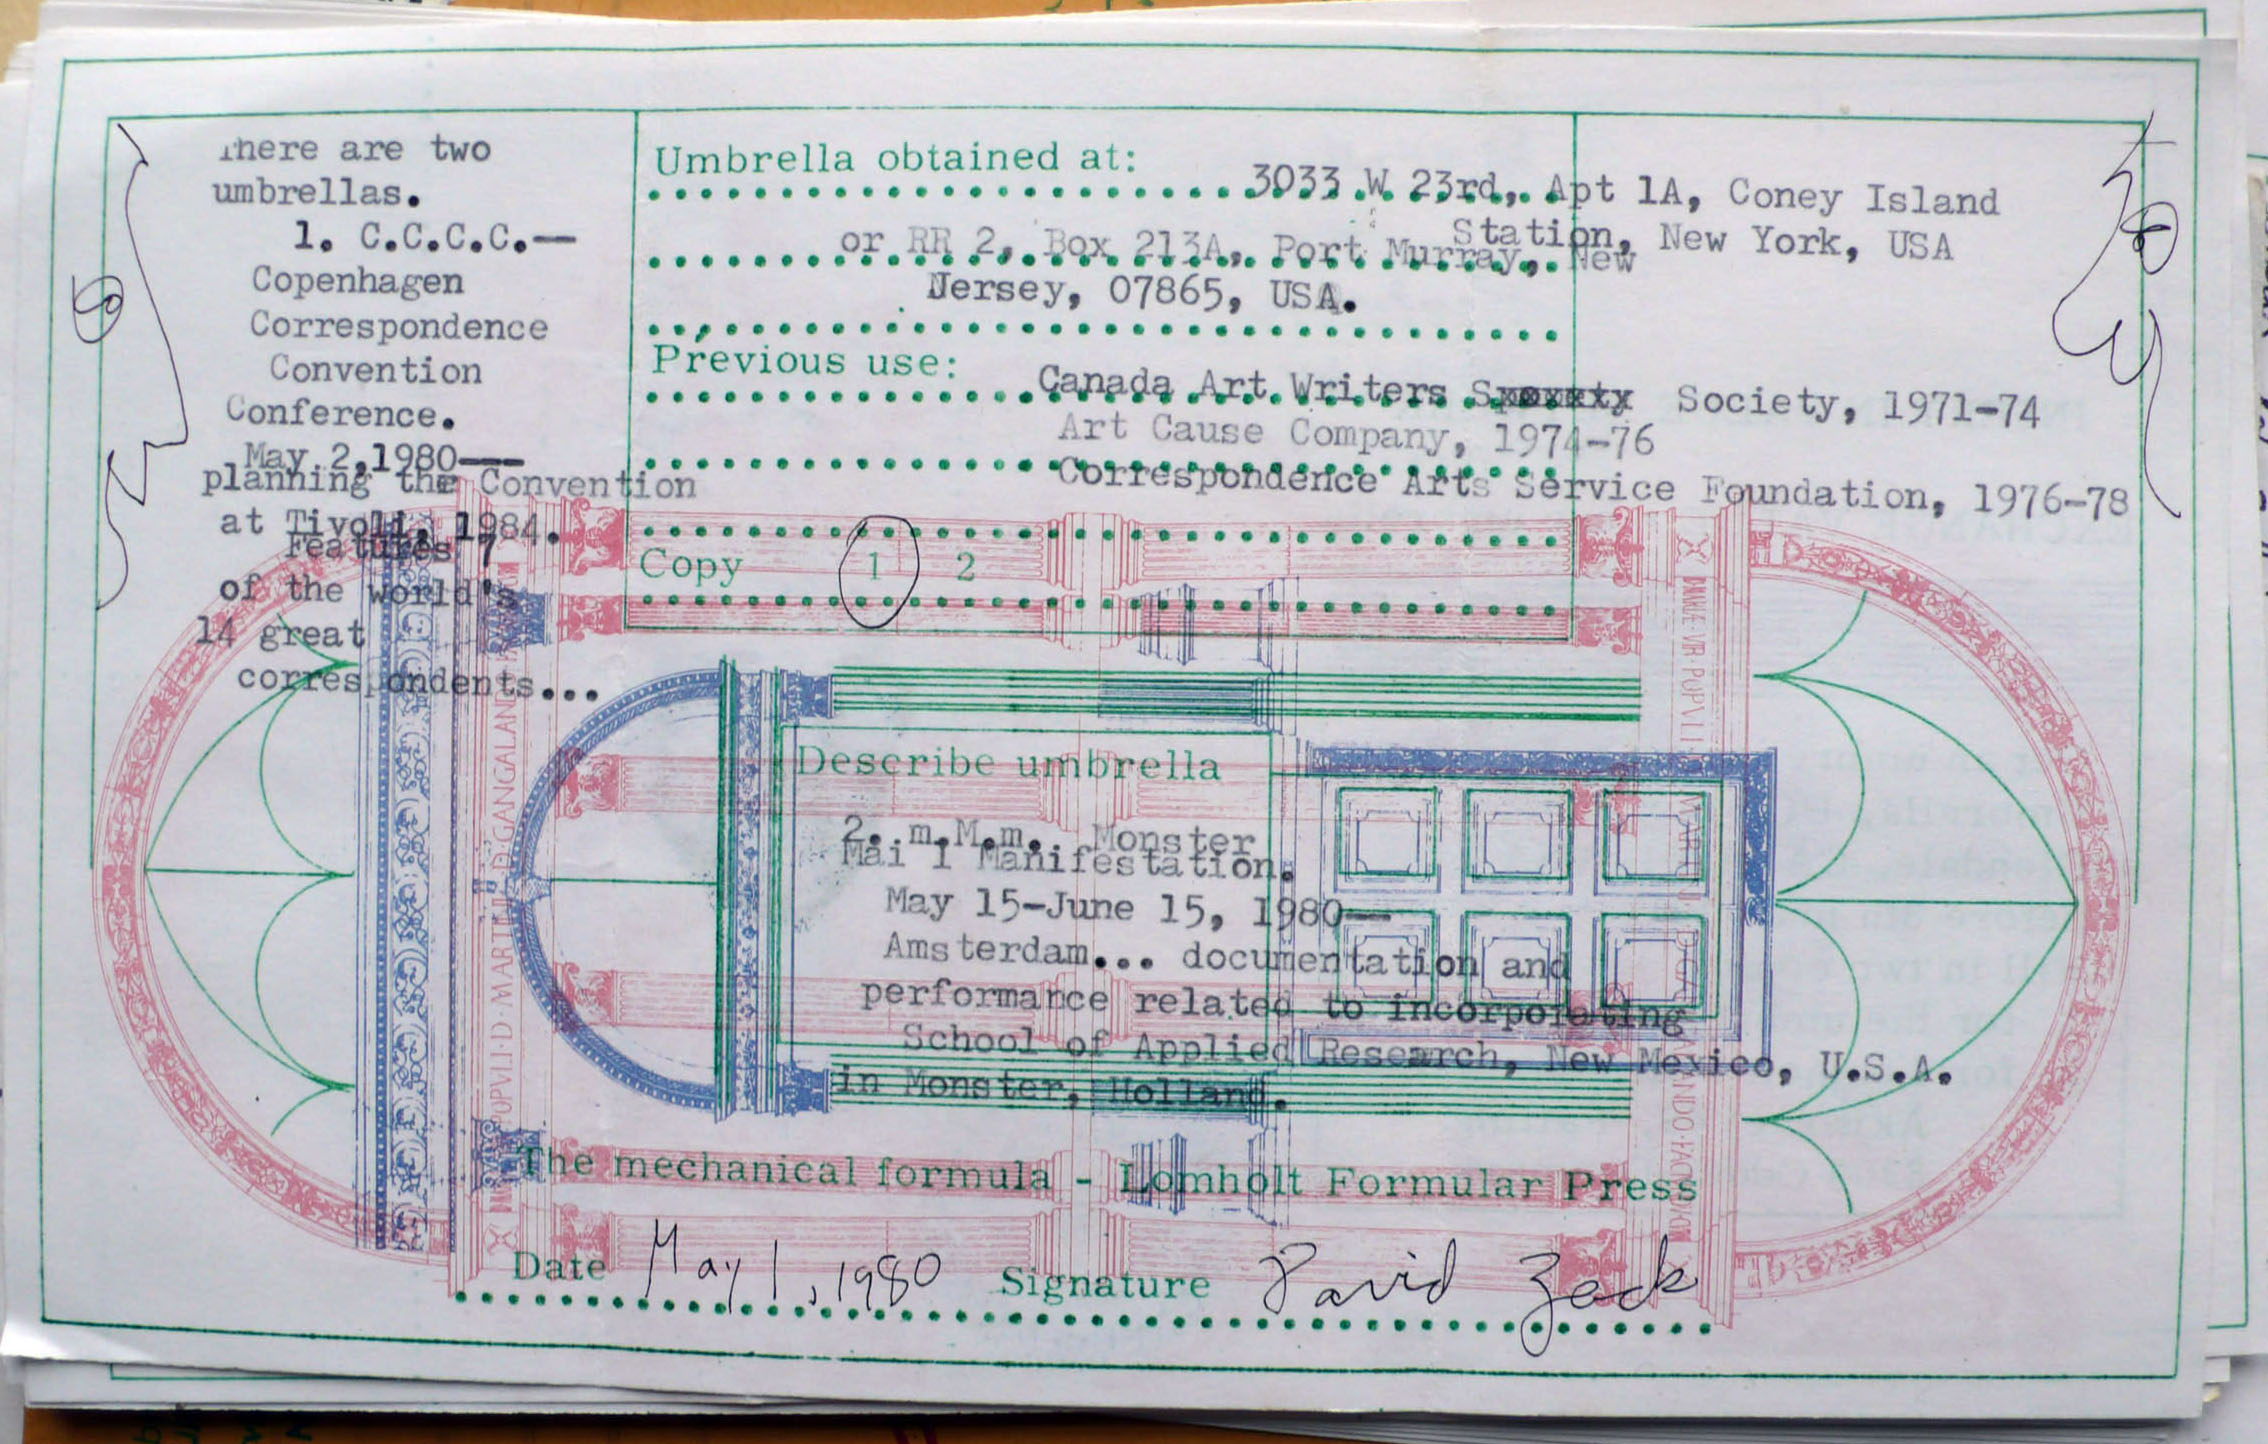 There are two
umbrellas.
1. C.C.C.C.—
Copenhagen
Correspondence
Convention
Conference.
May 2,1980——
planning the Convention
at Tivoli, 1984.
Features 7
of the world's
14 great
correspondents...
Umbrella obtained at:
3033 W 23rd, Apt 1A, Coney Island
Station, New York, USA
or RR 2, Box 213A, Port Murray, New
Jersey, 07865, USA.
Previous use:
Canada Art Writers Society, 1971-74
Art Cause Company, 1974-76
Correspondence Arts Service Foundation, 1976-78
Copy 1 2
Describe umbrella
2. m.M.m. Monster
Mai 1 Manifestation.
May 15-June 15, 1980——
Amsterdam... documentation and
performance related to incorporating
School of Applied Research, New Mexico, U.S.A.
in Monster, Holland.
The mechanical formula - Lomholt Formular Press
Date May 1, 1980 Signature David Zack